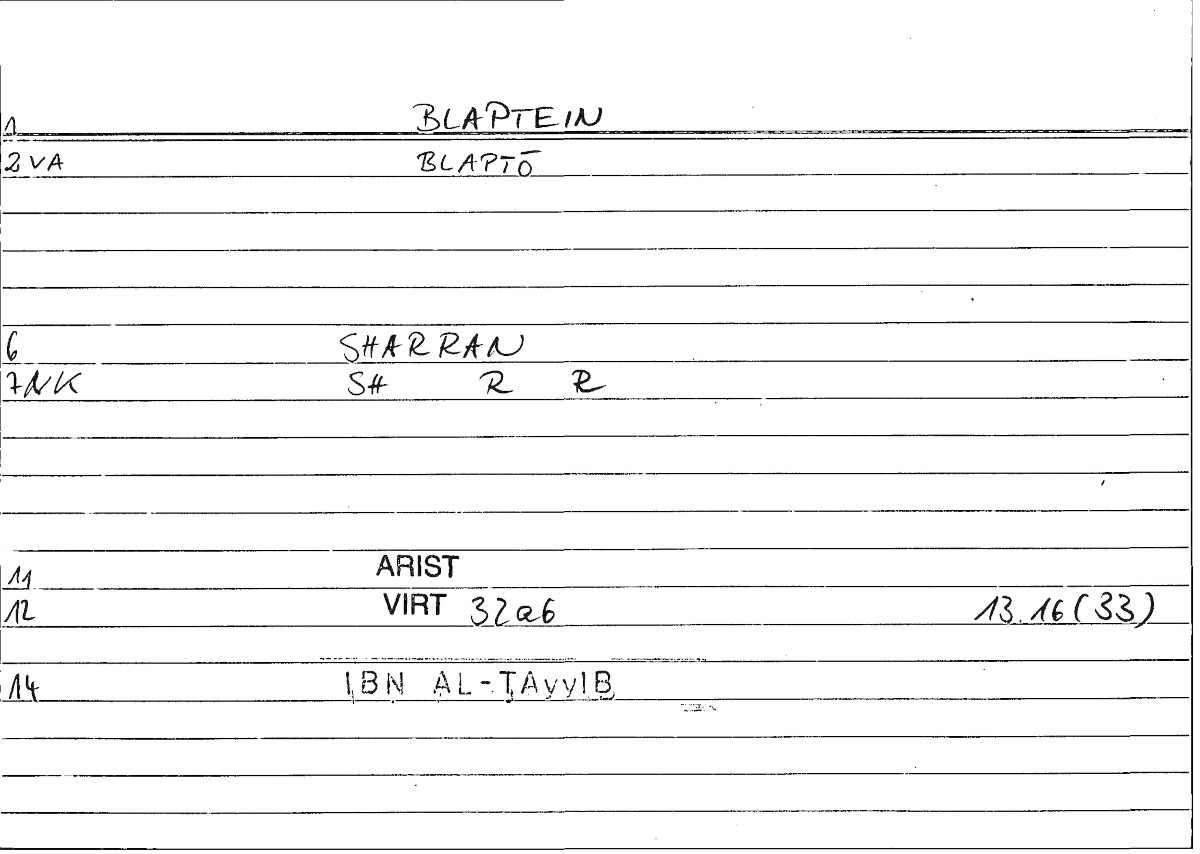 1 BLAPTEIN
2 VA BLAPTŌ
6 SHARRAN
7NK SH R R
11 ARIST
12 VIRT 32a6 13.16(33)
14 IBN AL-ṬAyyIB